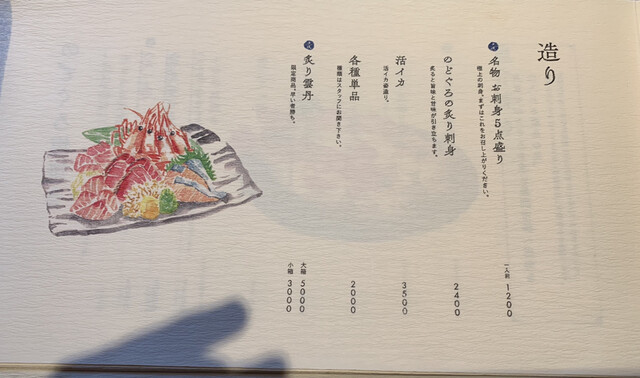 造り
名物 お刺身5点盛り
極上の刺身。まずはこれをお召し上がりください。
一人前 1200
のどぐろの炙り刺身
炙ると旨味と甘味が引き立ちます。
2400
活イカ
活イカ姿造り。
3500
各種単品
種類はスタッフにお聞き下さい。
2000
炙り雲丹
限定商品。早い者勝ち。
大箱 5000
小箱 3000